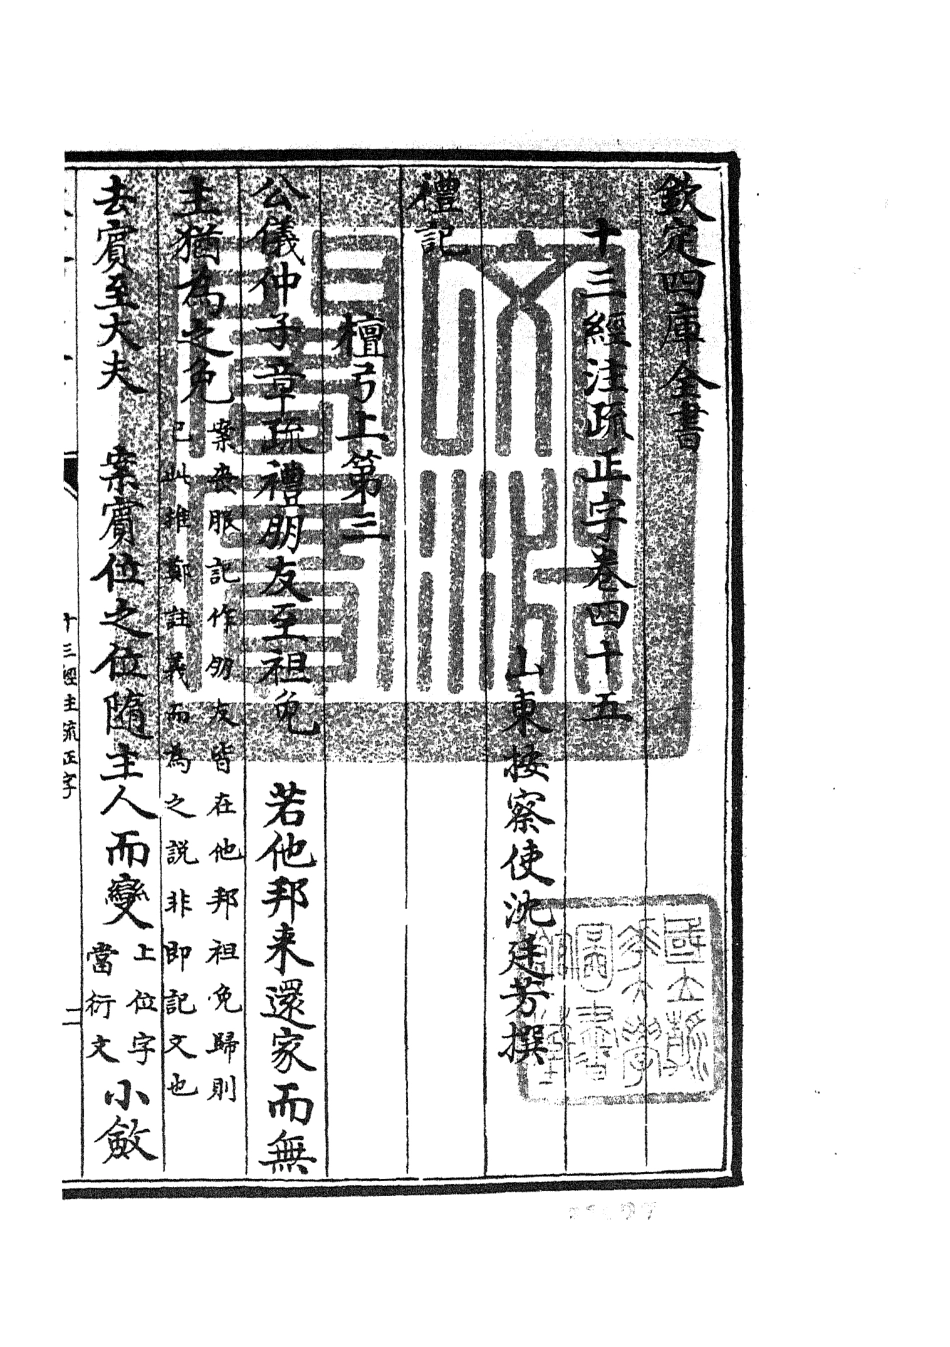 欽定四庫全書
十三經注疏正字卷四十五
山東按察使沈廷芳撰
禮記
檀弓上第三
公儀仲子章疏禮朋友至祖免　若他邦來還家而無
主猶為之免案喪服記作朋友皆在他邦祖免歸則
已此推鄭註義而為之說非即記文也
去賓至大夫　案賓位之位隨主人而變上位字
當衍文小斂
十三經注疏正字
二